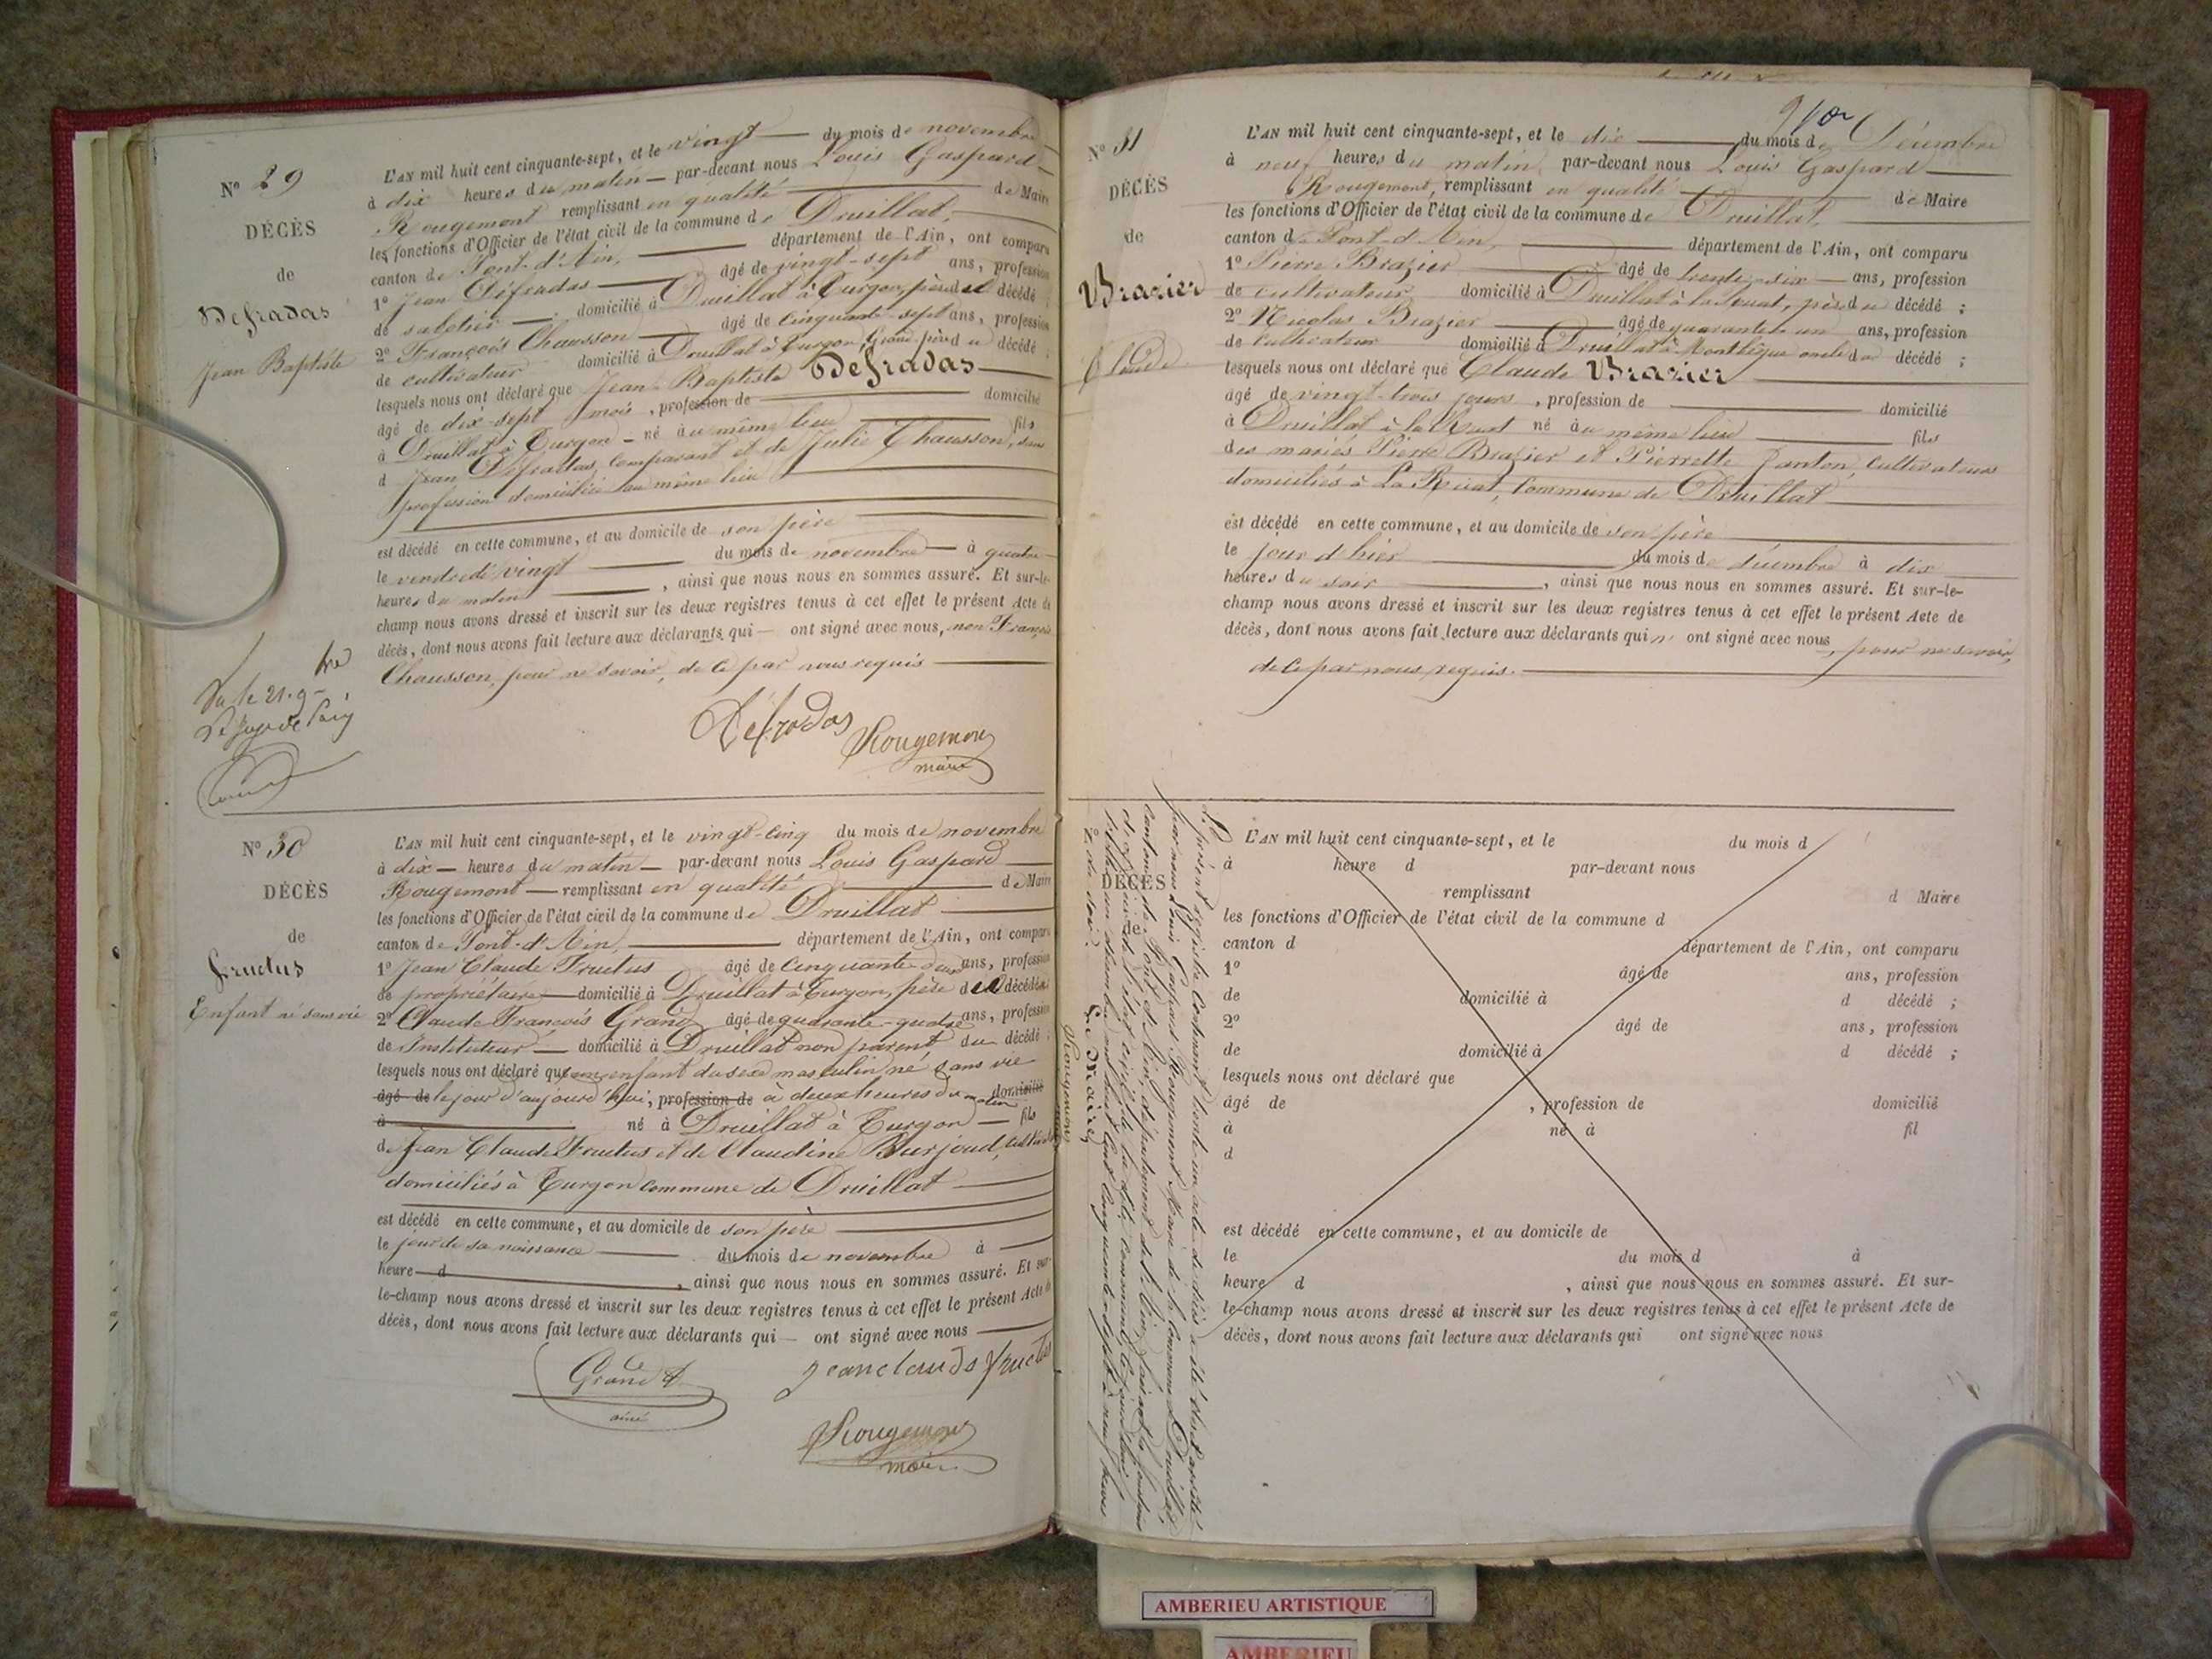 N° 29
DÉCÈS
de
Defradas
Jean Baptiste
L'AN mil huit cent cinquante-sept, et le vingt du mois de novembre
à dix heures du matin par-devant nous Louis Gaspard
Rougemont remplissant en qualité de Maire
les fonctions d'Officier de l'état civil de la commune de Druillat,
canton de Pont-d'Ain, département de l'Ain, ont comparu
1° Jean Défradas âgé de vingt-sept ans, profession
de sabotier domicilié à Druillat à Turgon, père du décédé ;
2° François Chausson âgé de cinquante-sept ans, profession
de cultivateur domicilié à Druillat à Turgon, Grand-père du décédé ;
lesquels nous ont déclaré que Jean-Baptiste Defradas
âgé de dix-sept mois, profession de domicilié
à Druillat à Turgon né au même lieu fils
d Jean Défradas, comparant et de Julie Chausson, sans
profession domiciliée au même lieu
est décédé en cette commune, et au domicile de son père
le vendredi vingt du mois de novembre à quatre
heures du matin, ainsi que nous nous en sommes assuré. Et sur-le-
champ nous avons dressé et inscrit sur les deux registres tenus à cet effet le présent Acte de
décès, dont nous avons fait lecture aux déclarants qui ont signé avec nous, non François
Chausson, pour ne savoir, de ce par nous requis
Défradas
Rougemont
maire
Vu le 21. 9bre
Le Juge de Paix
N° 30
DÉCÈS
de
fructus
Enfant né sans vie
L'AN mil huit cent cinquante-sept, et le vingt-cinq du mois de novembre
à dix heures du matin par-devant nous Louis Gaspard
Rougemont remplissant en qualité de Maire
les fonctions d'Officier de l'état civil de la commune de Druillat
canton de Pont-d'Ain, département de l'Ain, ont comparu
1° Jean Claude Fructus âgé de cinquante-deux ans, profession
de propriétaire domicilié à Druillat à Turgon, père du décédé
2° Claude François Grand âgé de quarante-quatre ans, profession
de Instituteur domicilié à Druillat non parent du décédé ;
lesquels nous ont déclaré que un enfant du sexe masculin né sans vie
âgé de le jour d'aujourd'hui, profession de à deux heures du matin domicilié
à né à Druillat à Turgon fils
de Jean Claude Fructus et de Claudine Burjoud,
domiciliés à Turgon commune de Druillat
est décédé en cette commune, et au domicile de son père
le jour de sa naissance du mois de novembre à
heure d , ainsi que nous nous en sommes assuré. Et sur-
le-champ nous avons dressé et inscrit sur les deux registres tenus à cet effet le présent Acte de
décès, dont nous avons fait lecture aux déclarants qui ont signé avec nous
Grand
ainé
jean claude fructus
Rougemont
maire
N° 31
DÉCÈS
de
Brazier
Claude
L'AN mil huit cent cinquante-sept, et le dix du mois de Décembre
à neuf heures du matin par-devant nous Louis Gaspard
Rougemont, remplissant en qualité de Maire
les fonctions d'Officier de l'état civil de la commune de Druillat,
canton de Pont-d'Ain, département de l'Ain, ont comparu
1° Pierre Brazier âgé de trente-six ans, profession
de cultivateur domicilié à Druillat à la Ruat, père du décédé ;
2° Nicolas Brazier âgé de quarante-un ans, profession
de cultivateur domicilié à Druillat à oncle du décédé ;
lesquels nous ont déclaré que Claude Brazier
âgé de vingt-trois jours, profession de domicilié
à Druillat à la Ruat né au même lieu fils
des mariés Pierre Brazier et Pierrette Janton, cultivateurs
domiciliés à La Ruat, commune de Druillat
est décédé en cette commune, et au domicile de son père
le jour d'hier du mois de décembre à dix
heures du soir, ainsi que nous nous en sommes assuré. Et sur-le-
champ nous avons dressé et inscrit sur les deux registres tenus à cet effet le présent Acte de
décès, dont nous avons fait lecture aux déclarants qui n' ont signé avec nous, pour ne savoir,
de ce par nous requis.
Le présent registre contenant trente-un acte de décès a été clos et arrêté
par nous Louis Gaspard Rougemont Maire de la commune de Druillat,
canton de Pont-d'Ain, département de l'Ain, faisant les fonctions
d'officier de l'état civil de la dite commune, aujourd'hui
trente-un décembre mil huit cent cinquante-sept à neuf heures
du soir.
Le Maire,
Rougemont
DÉCÈS
de
L'AN mil huit cent cinquante-sept, et le du mois d
à heure d par-devant nous
remplissant d Maire
les fonctions d'Officier de l'état civil de la commune d
canton d département de l'Ain, ont comparu
1° âgé de ans, profession
de domicilié à d décédé ;
2° âgé de ans, profession
de domicilié à d décédé ;
lesquels nous ont déclaré que
âgé de , profession de domicilié
à né à fil
d
est décédé en cette commune, et au domicile de
le du mois d à
heure d , ainsi que nous nous en sommes assuré. Et sur-
le-champ nous avons dressé et inscrit sur les deux registres tenus à cet effet le présent Acte de
décès, dont nous avons fait lecture aux déclarants qui ont signé avec nous
AMBERIEU ARTISTIQUE
AMBERIEU